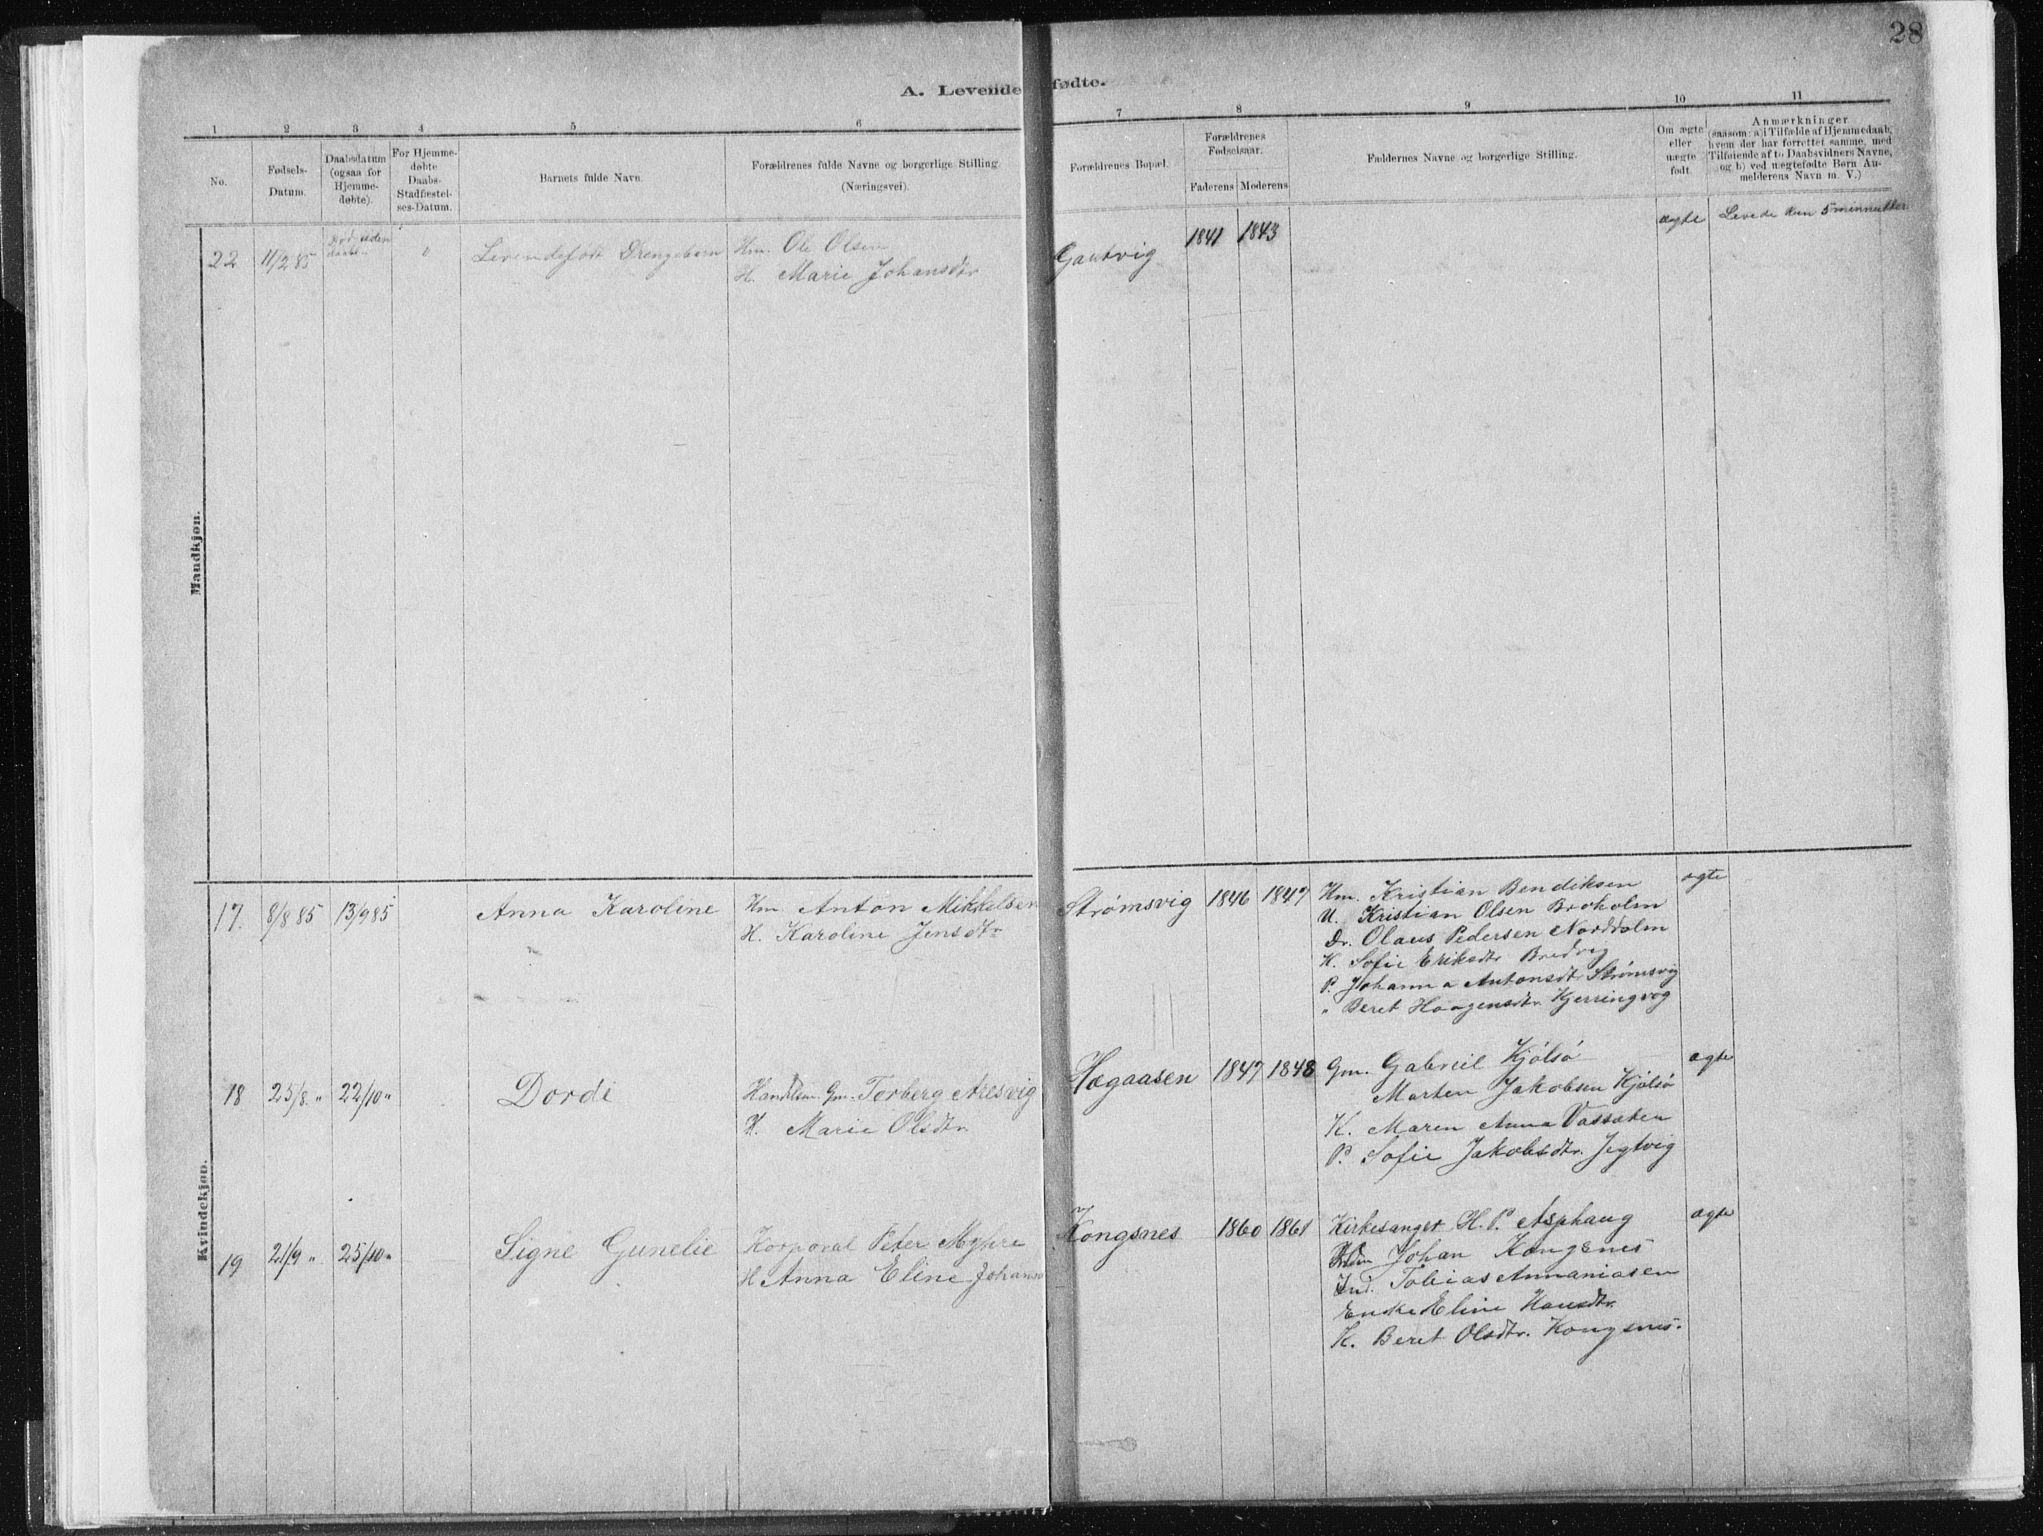 28
A. Levende fødte.
1 2 3 4 5 6 7 8 9 10 11
No.
Fødsels-
Datum.
Daabsdatum
(ogsaa for
Hjemme-
døbte).
For Hjemme-
døbte
Daabs-
Stadfæstel-
ses-Datum.
Barnets fulde Navn.
Forældrenes fulde Navne og borgerlige Stilling.
(Næringsvei).
Forældrenes Bopæl.
Forældrenes
Fødselsaar.
Faderens Moderens
Faddernes Navne og borgerlige Stilling.
Om ægte
eller
uægte
født.
Anmærkninger
(saasom: a) i Tilfælde af Hjemmedaab,
hvem der har forrettet samme, med
Tilføiende af to Daabsvidners Navne,
og b) ved uægtefødte Børn An-
melderens Navn m. V.)
Mandkjøn.
22 11/2 85
Død uden
daab
"
Levendefødt Drengebarn
Hm. Ole Olsen
H. Marie Johansdtr
Gautvig
1841 1843
ægte
Levede kun 5 minutter
Kvindekjøn.
17. 8/8 85 13/9 85
Anna Karoline
Hm. Anton Mikkelsen
H. Karoline Jensdtr
Strømsvig
1846 1847
Hm. Kristian Bendiksen
U. Kristian Olsen Broholm
Dr. Olaus Pedersen Norddalm
H. Sofie Eriksdtr Bredvig
P. Johanna Antonsdtr Strømsvig
" Beret Haagensdtr. Kjerringvog
ægte
18 25/8 " 22/10 "
Dordi
Handelsm. Gm. Torberg Aresvig
H. Marie Olsdtr.
Hægaasen
1847 1848
Gm. Gabriel Kjølsø
Morten Jakobsen Kjølsø
K. Maren Anna Vassaten
P. Sofie Jakobsdtr. Jegtvig
ægte
19 21/9 " 25/10 "
Signe Gunelie
Korporal Peter Myhre
H Anna Eline Johans
Kongsnes
1860 1861
Kirkesanger H. P. Asphaug
Johan Kongsnes
Ind. Tobias Annaniasen
Enke Eline Hansdtr.
K. Beret Olsdtr. Kongsnes.
ægte